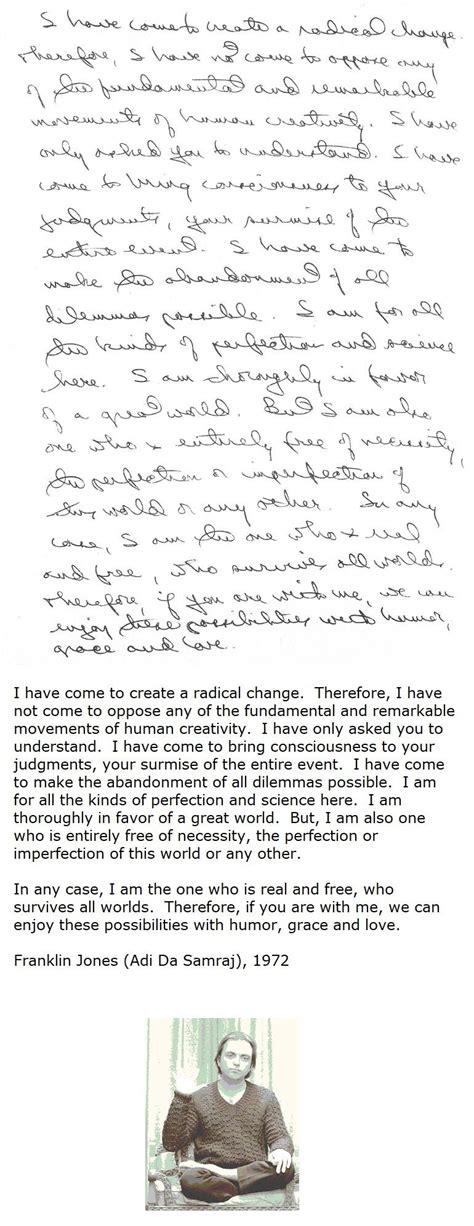 I have come to create a radical change.
Therefore, I have not come to oppose any
of the fundamental and remarkable
movements of human creativity. I have
only asked you to understand. I have
come to bring consciousness to your
judgments, your surmise of the
entire event. I have come to
make the abandonment of all
dilemmas possible. I am for all
the kinds of perfection and science
here. I am thoroughly in favor
of a great world. But I am also
one who is entirely free of necessity,
the perfection or imperfection of
this world or any other. In any
case, I am the one who is real
and free, who survives all worlds.
Therefore, if you are with me, we can
enjoy these possibilities with humor,
grace and love.
I have come to create a radical change.  Therefore, I have
not come to oppose any of the fundamental and remarkable
movements of human creativity.  I have only asked you to
understand.  I have come to bring consciousness to your
judgments, your surmise of the entire event.  I have come
to make the abandonment of all dilemmas possible.  I am
for all the kinds of perfection and science here.  I am
thoroughly in favor of a great world.  But, I am also one
who is entirely free of necessity, the perfection or
imperfection of this world or any other.
In any case, I am the one who is real and free, who
survives all worlds.  Therefore, if you are with me, we can
enjoy these possibilities with humor, grace and love.
Franklin Jones (Adi Da Samraj), 1972